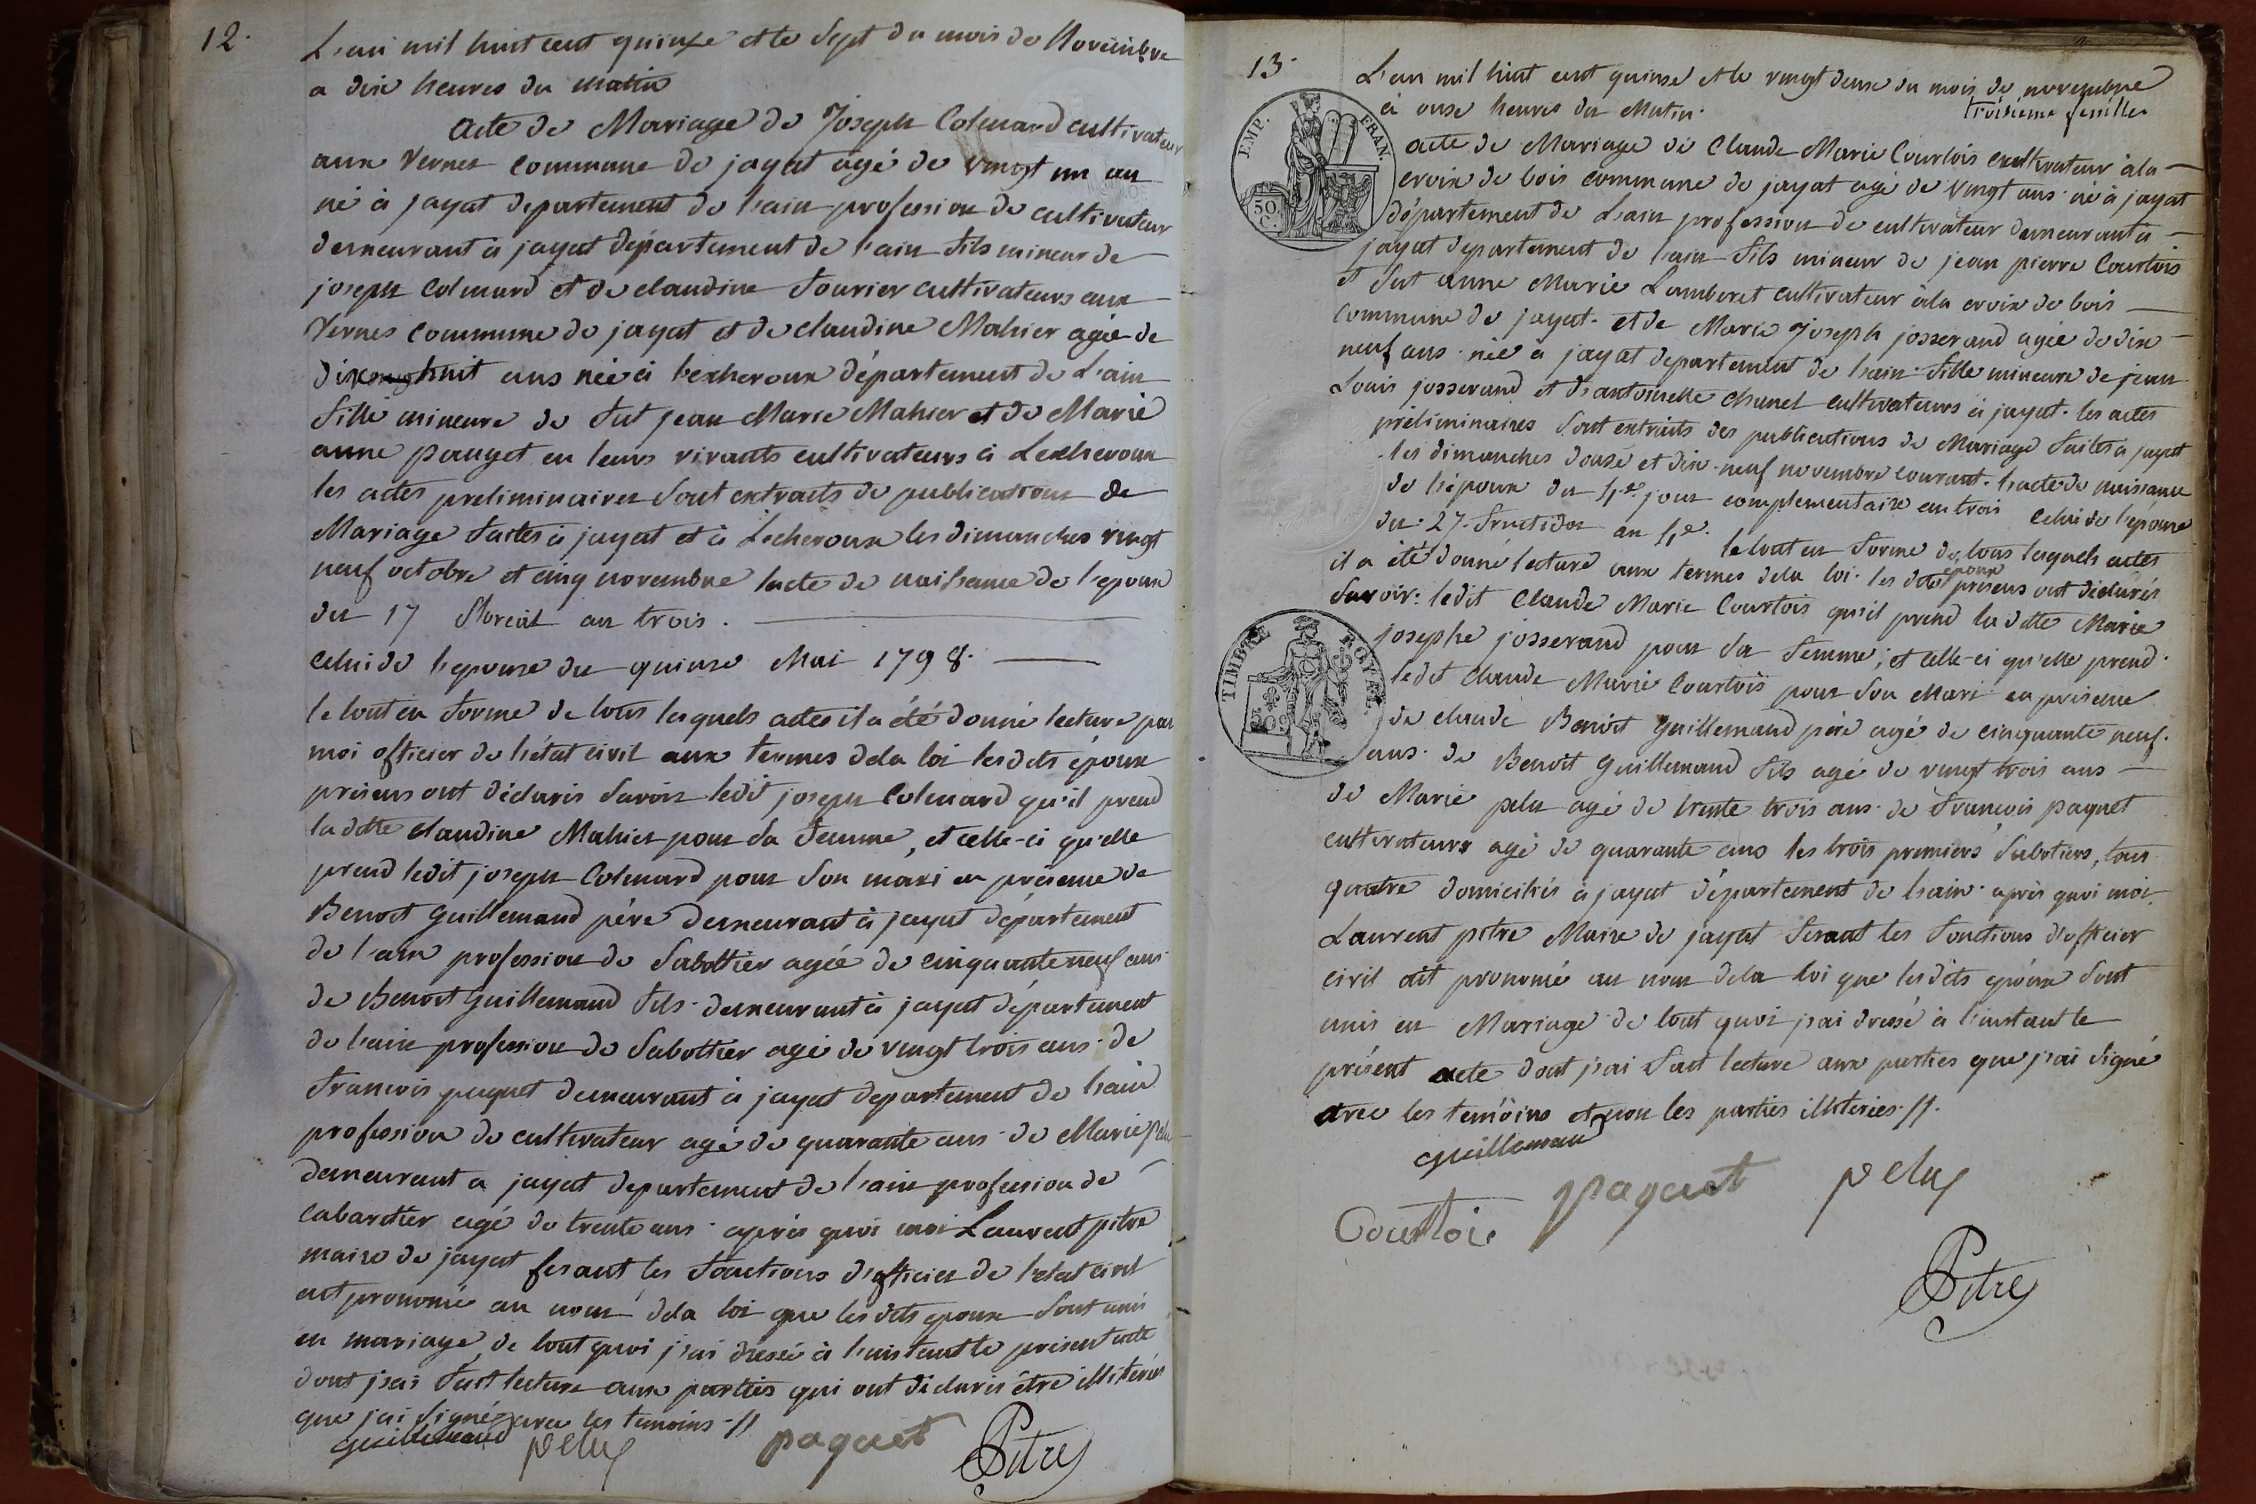 12.
L'an mil huit cent quinze et le sept du mois de Novembre
a dix heures du matin
acte de Mariage de Joseph Colmard cultivateur
aux Vernes commune de jayat agé de vingt un an
né à jayat departement de l'ain profession de cultivateur
demeurant à jayat département de l'ain fils mineur de
joseph Colmard et de claudine fourier cultivateurs aux
Vernes commune de jayat et de claudine Mahier agée de
dix huit ans née à lescheroux département de L'ain
fille mineure de fut jean Marie Mahier et de Marie
anne pauget en leurs vivants cultivateurs à Lescheroux
les actes preliminaires sont extraits de publications de
Mariage faites à jayat et à Lecheroux les dimanches vingt
neuf octobre et cinq novembre lacte de naissance de l'epoux
du 17 floreal an trois.
Celui de l'epouse du quinze Mai 1798.
le tout en forme de tous lesquels actes il a été donné lecture par
moi officier de l'état civil aux termes dela loi lesdits époux
présens ont déclarés savoir ledit joseph Colmard qu'il prend
la ditte claudine Mahier pour sa femme, et celle-ci qu'elle
prend ledit joseph Colmard pour son mari en présence de
Benoit guillemaud père demeurant à jayat département
de l'ain profession de sabottier agée de cinquante neuf ans
de Benoit guillemaud fils demeurant à jayat département
de l'ain profession de sabottier agé de vingt trois ans de
francois paquet demeurant à jayat departement de l'ain
profession de cultivateur agé de quarante ans de Marie pelu
demeurant a jayat departement de l'ain profession de
cabaretier agé de trente ans. après quoi moi Laurent pitre
maire de jayat fesant les fonctions d'officier de l'etat civil
ait pronomé au nom dela loi que les dits epoux sont unis
en mariage, de tout quoi j'ai dressé à l'instant le présent acte
dont j'ai fait lecture aux parties qui ont déclarés être illiterés
que jai signé avec les temoins
guillemaud peluz paquet Pitre
13.
L'an mil huit cent quinse et le vingt deux du mois de novembre
troisieme feuille
à onse heures du Matin.
EMP. FRAN.
50. C.
acte de Mariage de Claude Marie Courtois cultivateur à la
croix de bois commune de jayat agé de vingt ans né à jayat
département de L'ain profession de cultivateur demeurant à
jayat departement de l'ain fils mineur de jean pierre Courtois
et fut anne Marie Lamberet cultivateur à la croix de bois
commune de jayat. et de Marie joseph josserand agée de dix
neuf ans née à jayat departement de l'ain fille mineure de jean
Louis josserand et d'antoinette chanel cultivateurs à jayat. les actes
préliminaires sont extraits des publications de Mariage faites à jayat
les dimanches douze et dix-neuf novembre courant. l'acte de naissance
de l'époux du 4e. jour complementaire an trois Celui de l'épouse
du 27. fructidor an 4e. le tout en forme de tous lesquels actes
il a été donné lecture aux termes dela loi. les dits époux présens ont déclarés
Savoir: ledit Claude Marie Courtois qu'il prend la ditte Marie
TIMBRE ROYAL
josephe josserand pour sa femme; et celle-ci qu'elle prend
ledit Claude Marie Courtois pour son Mari en présence
de claude Benoit guillemaud père agé de cinquante neuf
ans. de Benoit guillemaud fils agé de vingt trois ans
de Marie pelu agé de trente trois ans. de francois paquet
cultivateurs agé de quarante ans les trois premiers sabotiers, tous
quatre domiciliés à jayat département de l'ain. après quoi moi
Laurent pitre Maire de jayat fesant les fonctions d'officier
civil ait pronomé au nom dela loi que les dits epoux sont
unis en Mariage de tout quoi j'ai dressé à l'instant le
présent acte dont j'ai fait lecture aux parties que j'ai signé
avec les temoins et non les parties illiteries
guillemau
Courtois paquet peluz
Pitre